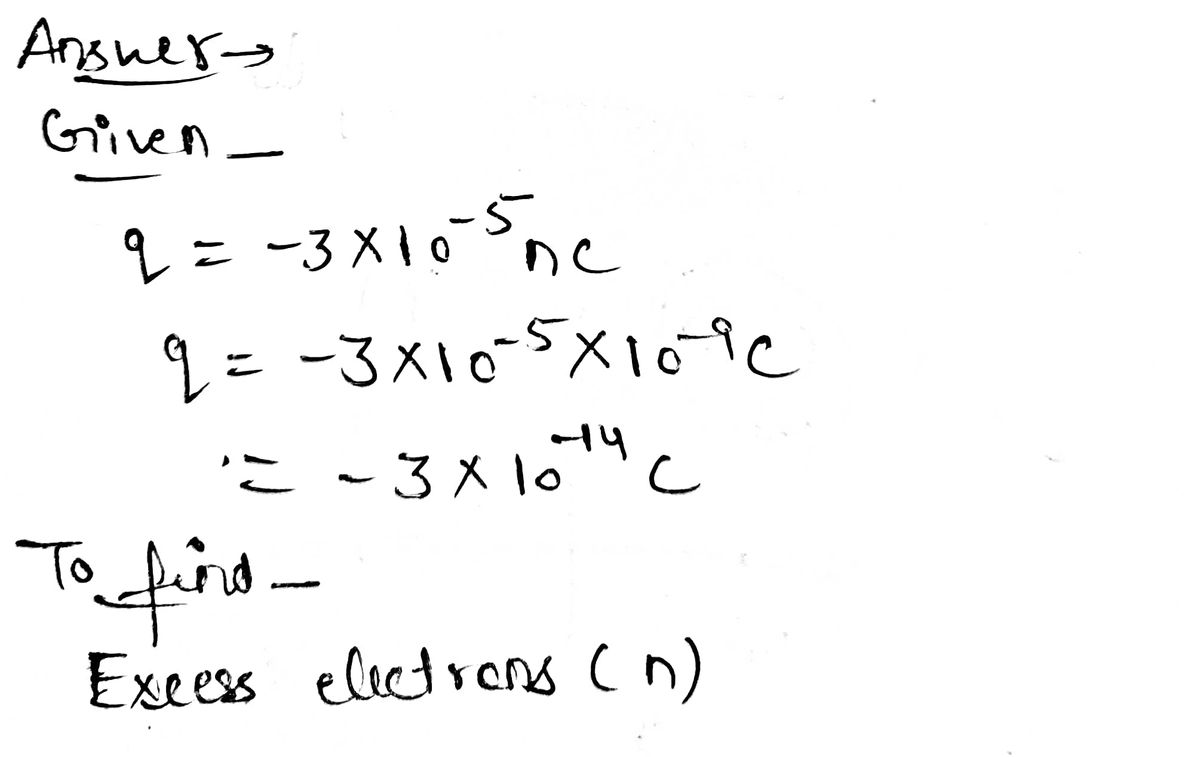 Answer→
Given —
q = -3×10⁻⁵ nc
q = -3×10⁻⁵×10⁻⁹c
= -3×10⁻¹⁴ c
To find —
Excess electrons (n)